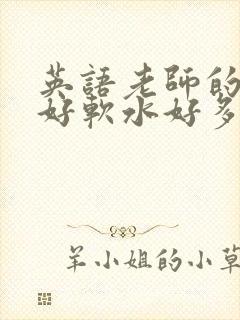 英語老師的
好軟水好多
羊小姐的小草